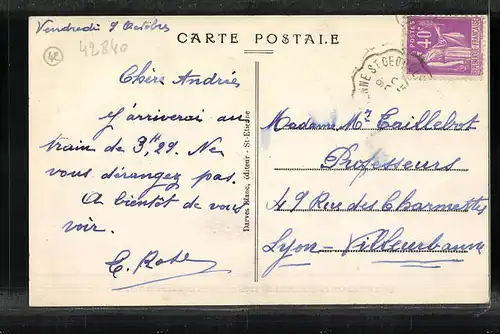 Vendredi 9 Octobre
42840
42
CARTE POSTALE
POSTES
40c
Chère Andrée
J'arriverai au
train de 3H,29. Ne
vous dérangez pas.
A bientôt de vous
voir.
Darves Blanc, éditeur - St-Etienne
Madame, Mr Taillebot
Professeurs
49 Rue des Charmettes
Lyon-Villeurbanne